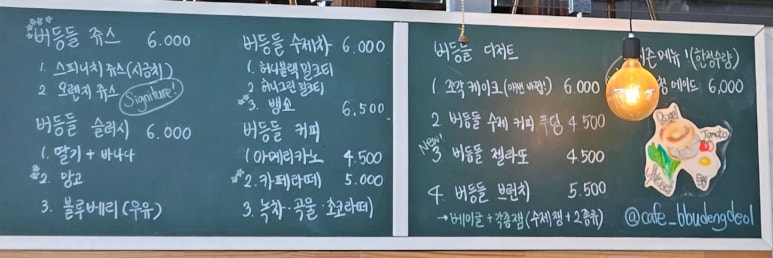 버등들 쥬스 6.000
1. 스피니치 쥬스(시금치)
2 오렌지 쥬스 Signiture!
버등들 슬러시 6.000
1. 딸기 + 바나나
2. 망고
3. 블루베리 (우유)
버등들 수제차 6.000
1. 허니블랙 밀크티
2. 허니그린 밀크티
3. 뱅쇼 6,500
버등들 커피
1 아메리카노 4.500
2. 카페라떼 5.000
3. 녹차·곡물·초코라떼)
버등들 디저트
1 조각케이크 6,000
2 버등들 수제 커피 푸딩 4 500
New!
3 버등들 젤라또 4500
4. 버등들 브런치 5.500
→ 베이글 + 각종잼 (수제잼 + 2종류)
메뉴 ! (한정수량)
에이드 6,000
Bagel
Tomato
@cafe_bbudengdeol